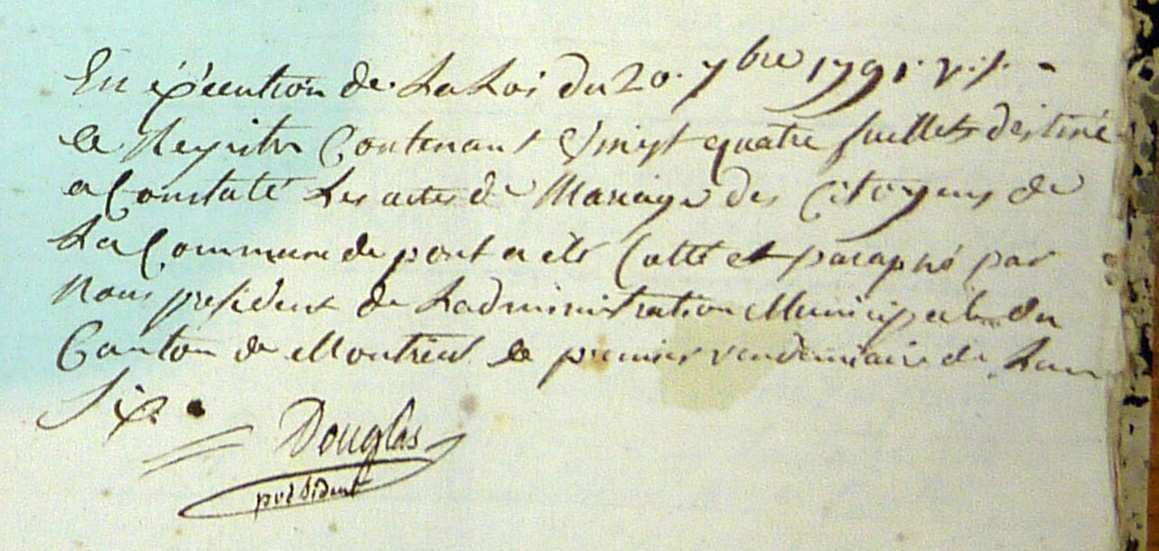 En éxécution de La Loi du 20. 7bre 1791. v. s.
le Registre Contenant Vingt quatre fuillets destiné
a Constaté Les actes de Mariage des Citoyens de
La Commune de port a été Cotté et paraphé par
Nous président de Ladministration Municipale du
Canton de Montreal le premier vendemiaire de Lan
Six.
Douglas
président